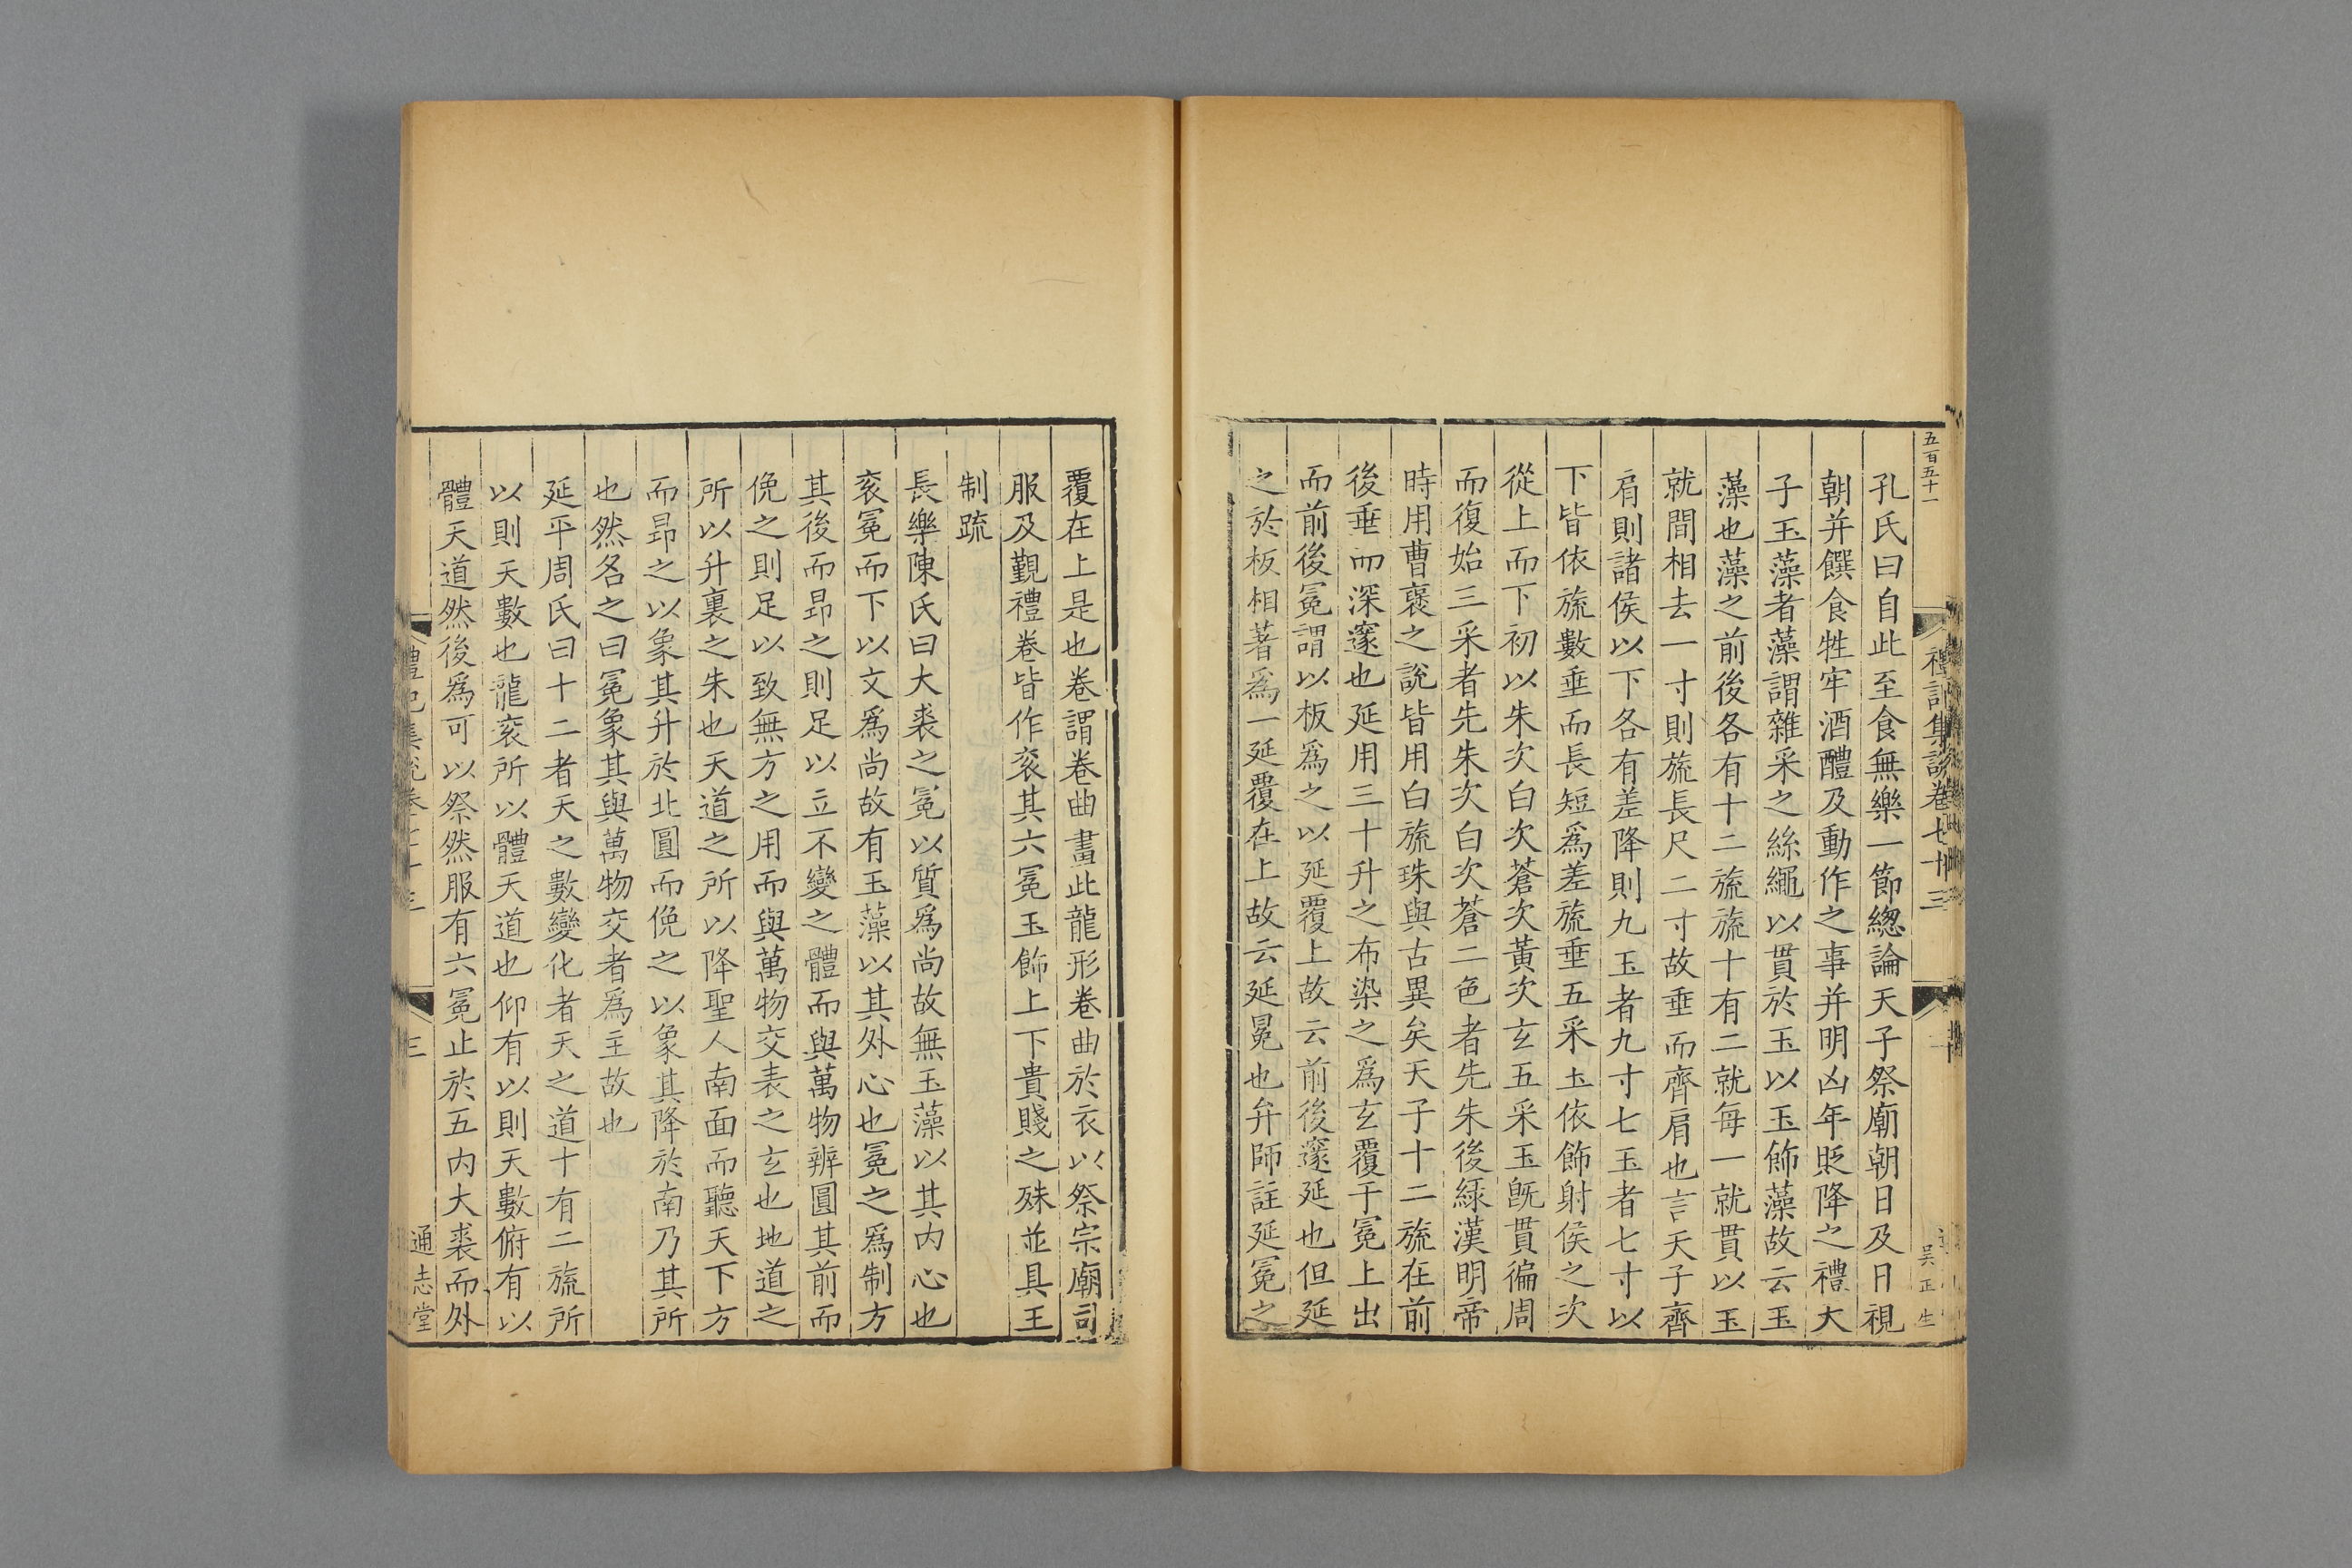 五百五十一
禮記集說卷七十三
吴正生
孔氏曰自此至食無樂一節緫論天子祭廟朝日及日視
朝并饌食牲牢酒醴及動作之事并明凶年貶降之禮大
子玉藻者藻謂雜采之絲繩以貫於玉以玉飾藻故云玉
藻也藻之前後各有十二旒旒十有二就每一就貫以玉
就間相去一寸則旒長尺二寸故垂而齊肩也言天子齊
肩則諸侯以下各有差降則九玉者九寸七玉者七寸以
下皆依旒數垂而長短爲差旒垂五采玉依飾射侯之次
從上而下初以朱次白次蒼次黃次玄五采玉旣貫徧周
而復始三采者先朱次白次蒼二色者先朱後緑漢明帝
時用曹褒之說皆用白旒珠與古異矣天子十二旒在前
後垂而深邃也延用三十升之布染之爲玄覆于冕上出
而前後冕謂以板爲之以延覆上故云前後邃延也但延
之於板相著爲一延覆在上故云延冕也弁師註延冕之
覆在上是也卷謂卷曲畫此龍形卷曲於衣以祭宗廟司
服及覲禮卷皆作衮其六冕玉飾上下貴賤之殊並具王
制疏
長樂陳氏曰大裘之冕以質爲尚故無玉藻以其内心也
衮冕而下以文爲尚故有玉藻以其外心也冕之爲制方
其後而昂之則足以立不變之體而與萬物辨圓其前而
俛之則足以致無方之用而與萬物交表之玄也地道之
所以升裏之朱也天道之所以降聖人南面而聽天下方
而昂之以象其升於北圓而俛之以象其降於南乃其所
也然名之曰冕象其與萬物交者爲主故也
延平周氏曰十二者天之數變化者天之道十有二旒所
以則天數也龍衮所以體天道也仰有以則天數俯有以
體天道然後爲可以祭然服有六冕止於五内大裘而外
禮記集說卷七十三
三
通志堂